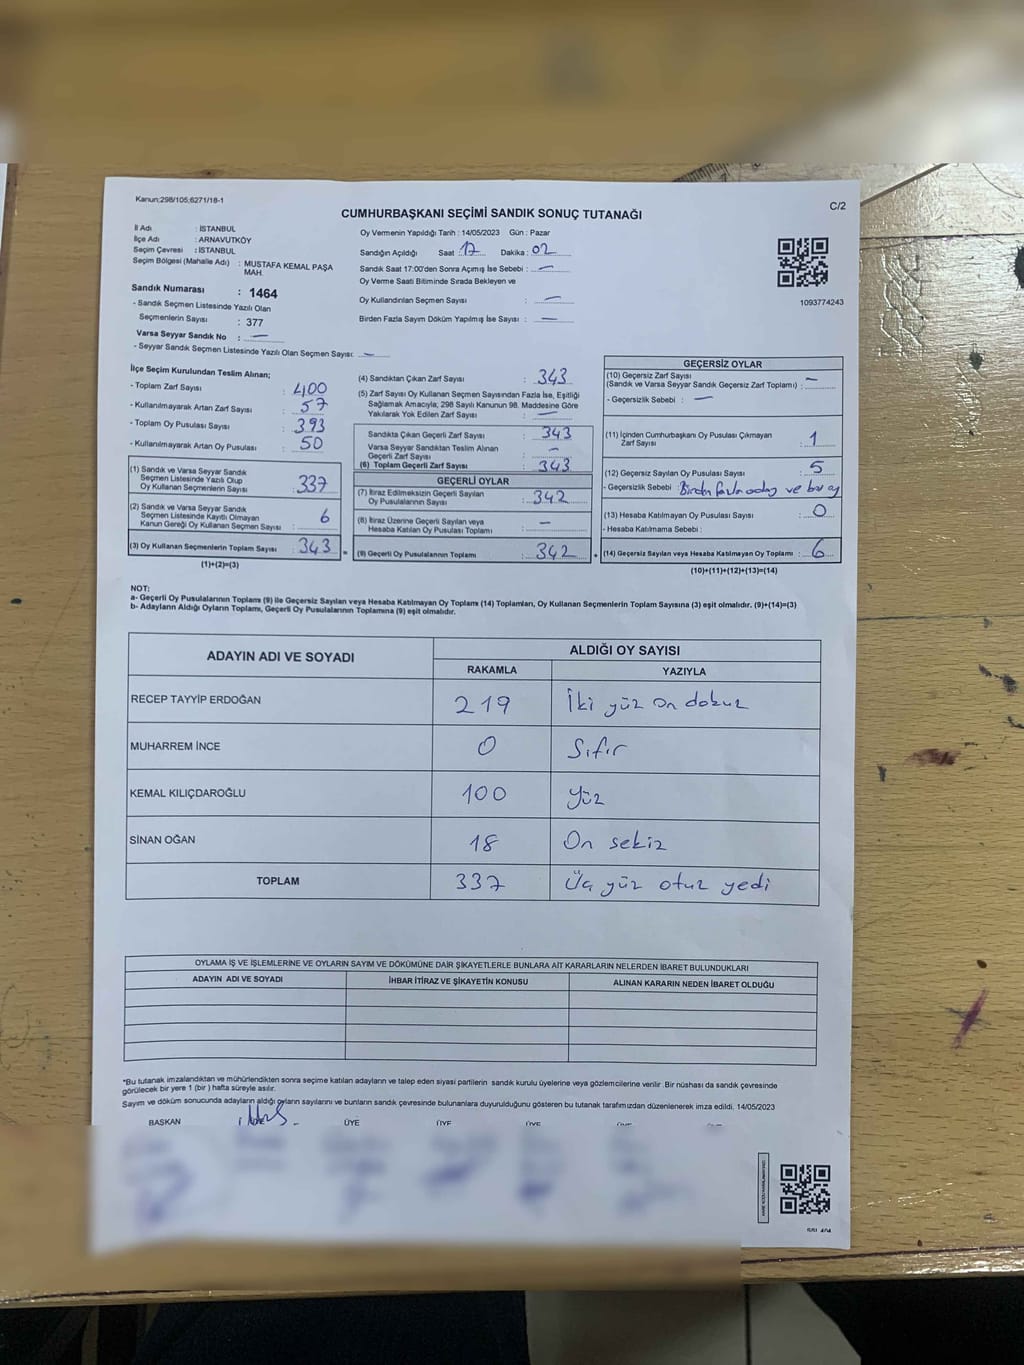 Kanun:298/105;6271/18-1
C/2
CUMHURBAŞKANI SEÇİMİ SANDIK SONUÇ TUTANAĞI
İl Adı : İSTANBUL
İlçe Adı : ARNAVUTKÖY
Seçim Çevresi : İSTANBUL
Seçim Bölgesi (Mahalle Adı) : MUSTAFA KEMAL PAŞA
MAH.
Sandık Numarası : 1464
- Sandık Seçmen Listesinde Yazılı Olan
Seçmenlerin Sayısı : 377
Varsa Seyyar Sandık No : —
- Seyyar Sandık Seçmen Listesinde Yazılı Olan Seçmen Sayısı: —
Oy Vermenin Yapıldığı Tarih : 14/05/2023 Gün : Pazar
Sandığın Açıldığı Saat : 17 Dakika : 02
Sandık Saat 17:00'den Sonra Açımış İse Sebebi : —
Oy Verme Saati Bitiminde Sırada Bekleyen ve
Oy Kullandırılan Seçmen Sayısı : —
Birden Fazla Sayım Döküm Yapılmış İse Sayısı : —
1093774243
İlçe Seçim Kurulundan Teslim Alınan;
- Toplam Zarf Sayısı : 400
- Kullanılmayarak Artan Zarf Sayısı : 57
- Toplam Oy Pusulası Sayısı : 393
- Kullanılmayarak Artan Oy Pusulası : 50
(1) Sandık ve Varsa Seyyar Sandık
Seçmen Listesinde Yazılı Olup
Oy Kullanan Seçmenlerin Sayısı : 337
(2) Sandık ve Varsa Seyyar Sandık
Seçmen Listesinde Kayıtlı Olmayan
Kanun Gereği Oy Kullanan Seçmen Sayısı : 6
(3) Oy Kullanan Seçmenlerin Toplam Sayısı : 343 =
(1)+(2)=(3)
(4) Sandıktan Çıkan Zarf Sayısı : 343
(5) Zarf Sayısı Oy Kullanan Seçmen Sayısından Fazla İse, Eşitliği
Sağlamak Amacıyla; 298 Sayılı Kanunun 98. Maddesine Göre
Yakılarak Yok Edilen Zarf Sayısı : —
Sandıkta Çıkan Geçerli Zarf Sayısı : 343
Varsa Seyyar Sandıktan Teslim Alınan
Geçerli Zarf Sayısı : —
(6) Toplam Geçerli Zarf Sayısı : 343
GEÇERLİ OYLAR
(7) İtiraz Edilmeksizin Geçerli Sayılan
Oy Pusulalarının Sayısı : 342
(8) İtiraz Üzerine Geçerli Sayılan veya
Hesaba Katılan Oy Pusulası Toplamı : —
(9) Geçerli Oy Pusulalarının Toplamı : 342 +
GEÇERSİZ OYLAR
(10) Geçersiz Zarf Sayısı
(Sandık ve Varsa Seyyar Sandık Geçersiz Zarf Toplamı) : —
- Geçersizlik Sebebi : —
(11) İçinden Cumhurbaşkanı Oy Pusulası Çıkmayan
Zarf Sayısı : 1
(12) Geçersiz Sayılan Oy Pusulası Sayısı : 5
- Geçersizlik Sebebi : Birden fazla aday ve boş oy
(13) Hesaba Katılmayan Oy Pusulası Sayısı : 0
- Hesaba Katılmama Sebebi :
(14) Geçersiz Sayılan veya Hesaba Katılmayan Oy Toplamı : 6
(10)+(11)+(12)+(13)=(14)
NOT:
a- Geçerli Oy Pusulalarının Toplamı (9) ile Geçersiz Sayılan veya Hesaba Katılmayan Oy Toplamı (14) Toplamları, Oy Kullanan Seçmenlerin Toplam Sayısına (3) eşit olmalıdır. (9)+(14)=(3)
b- Adayların Aldığı Oyların Toplamı, Geçerli Oy Pusulalarının Toplamına (9) eşit olmalıdır.
ADAYIN ADI VE SOYADI
ALDIĞI OY SAYISI
RAKAMLA YAZIYLA
RECEP TAYYİP ERDOĞAN 219 İki yüz on dokuz
MUHARREM İNCE 0 Sıfır
KEMAL KILIÇDAROĞLU 100 Yüz
SİNAN OĞAN 18 On sekiz
TOPLAM 337 Üç yüz otuz yedi
OYLAMA İŞ VE İŞLEMLERİNE VE OYLARIN SAYIM VE DÖKÜMÜNE DAİR ŞİKAYETLERLE BUNLARA AİT KARARLARIN NELERDEN İBARET BULUNDUKLARI
ADAYIN ADI VE SOYADI İHBAR İTİRAZ VE ŞİKAYETİN KONUSU ALINAN KARARIN NEDEN İBARET OLDUĞU
*Bu tutanak imzalandıktan ve mühürlendikten sonra seçime katılan adayların ve talep eden siyasi partilerin sandık kurulu üyelerine veya gözlemcilerine verilir. Bir nüshası da sandık çevresinde
görülecek bir yere 1 (bir ) hafta süreyle asılır.
Sayım ve döküm sonucunda adayların aldığı oyların sayılarını ve bunların sandık çevresinde bulunanlara duyurulduğunu gösteren bu tutanak tarafımızdan düzenlenerek imza edildi. 14/05/2023
BAŞKAN ÜYE ÜYE ÜYE